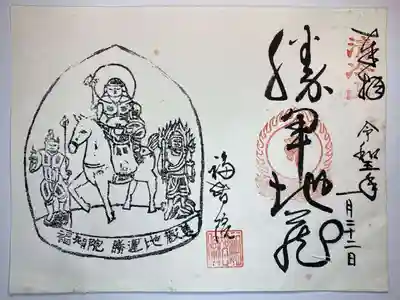 奉拝
令和
一月二十二日
勝軍地蔵
福智院
福智院勝運地蔵尊